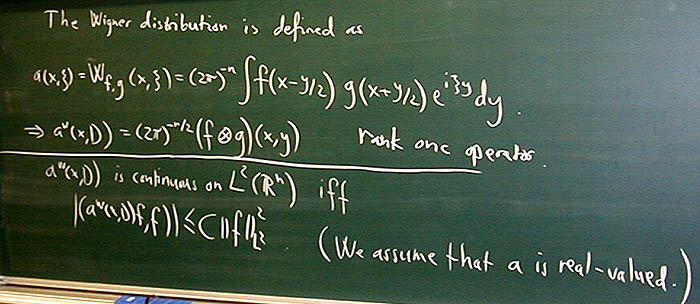 The Wigner distribution is defined as
a(x,ξ) = W_{f,g}(x,ξ) = (2π)^{-n} ∫ f(x-y/2) g(x+y/2) e^{iξy} dy.
⇒ a^w(x,D) = (2π)^{-n/2} (f⊗g)(x,y) rank one operator.
a^w(x,D) is continuous on L^2(ℝ^n) iff
|(a^w(x,D)f,f)| ≤ C‖f‖_{L^2}^2
(We assume that a is real-valued.)